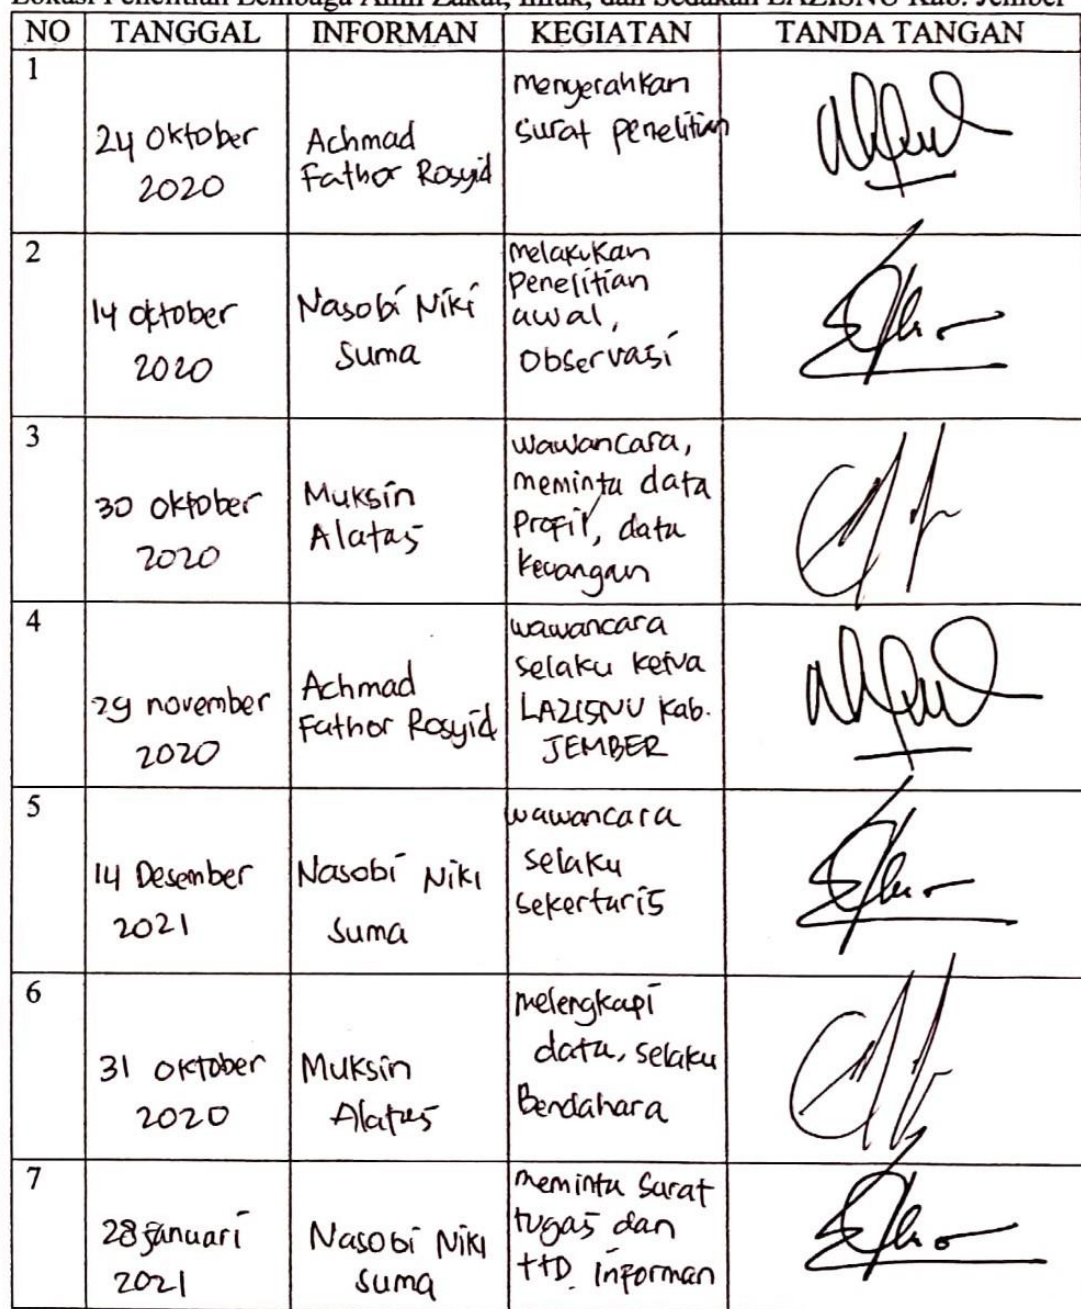 Lokasi Penelitian Lembaga Amil Zakat, Infak, dan Sedakah LAZISNU Kab. Jember
NO TANGGAL INFORMAN KEGIATAN TANDA TANGAN
1
24 Oktober
2020
Achmad
Fathor Rosyid
menyerahkan
surat penelitian
2
14 oktober
2020
Nasobi Niki
Suma
melakukan
penelitian
awal,
observasi
3
30 oktober
2020
Muksin
Alatas
wawancara,
meminta data
Profil, data
keuangan
4
29 november
2020
Achmad
Fathor Rosyid
wawancara
selaku ketua
LAZISNU Kab.
JEMBER
5
14 Desember
2021
Nasobi Niki
Suma
wawancara
selaku
sekertaris
6
31 oktober
2020
Muksin
Alatas
melengkapi
data, selaku
Bendahara
7
28 januari
2021
Nasobi Niki
Suma
meminta Surat
tugas dan
TTD informan